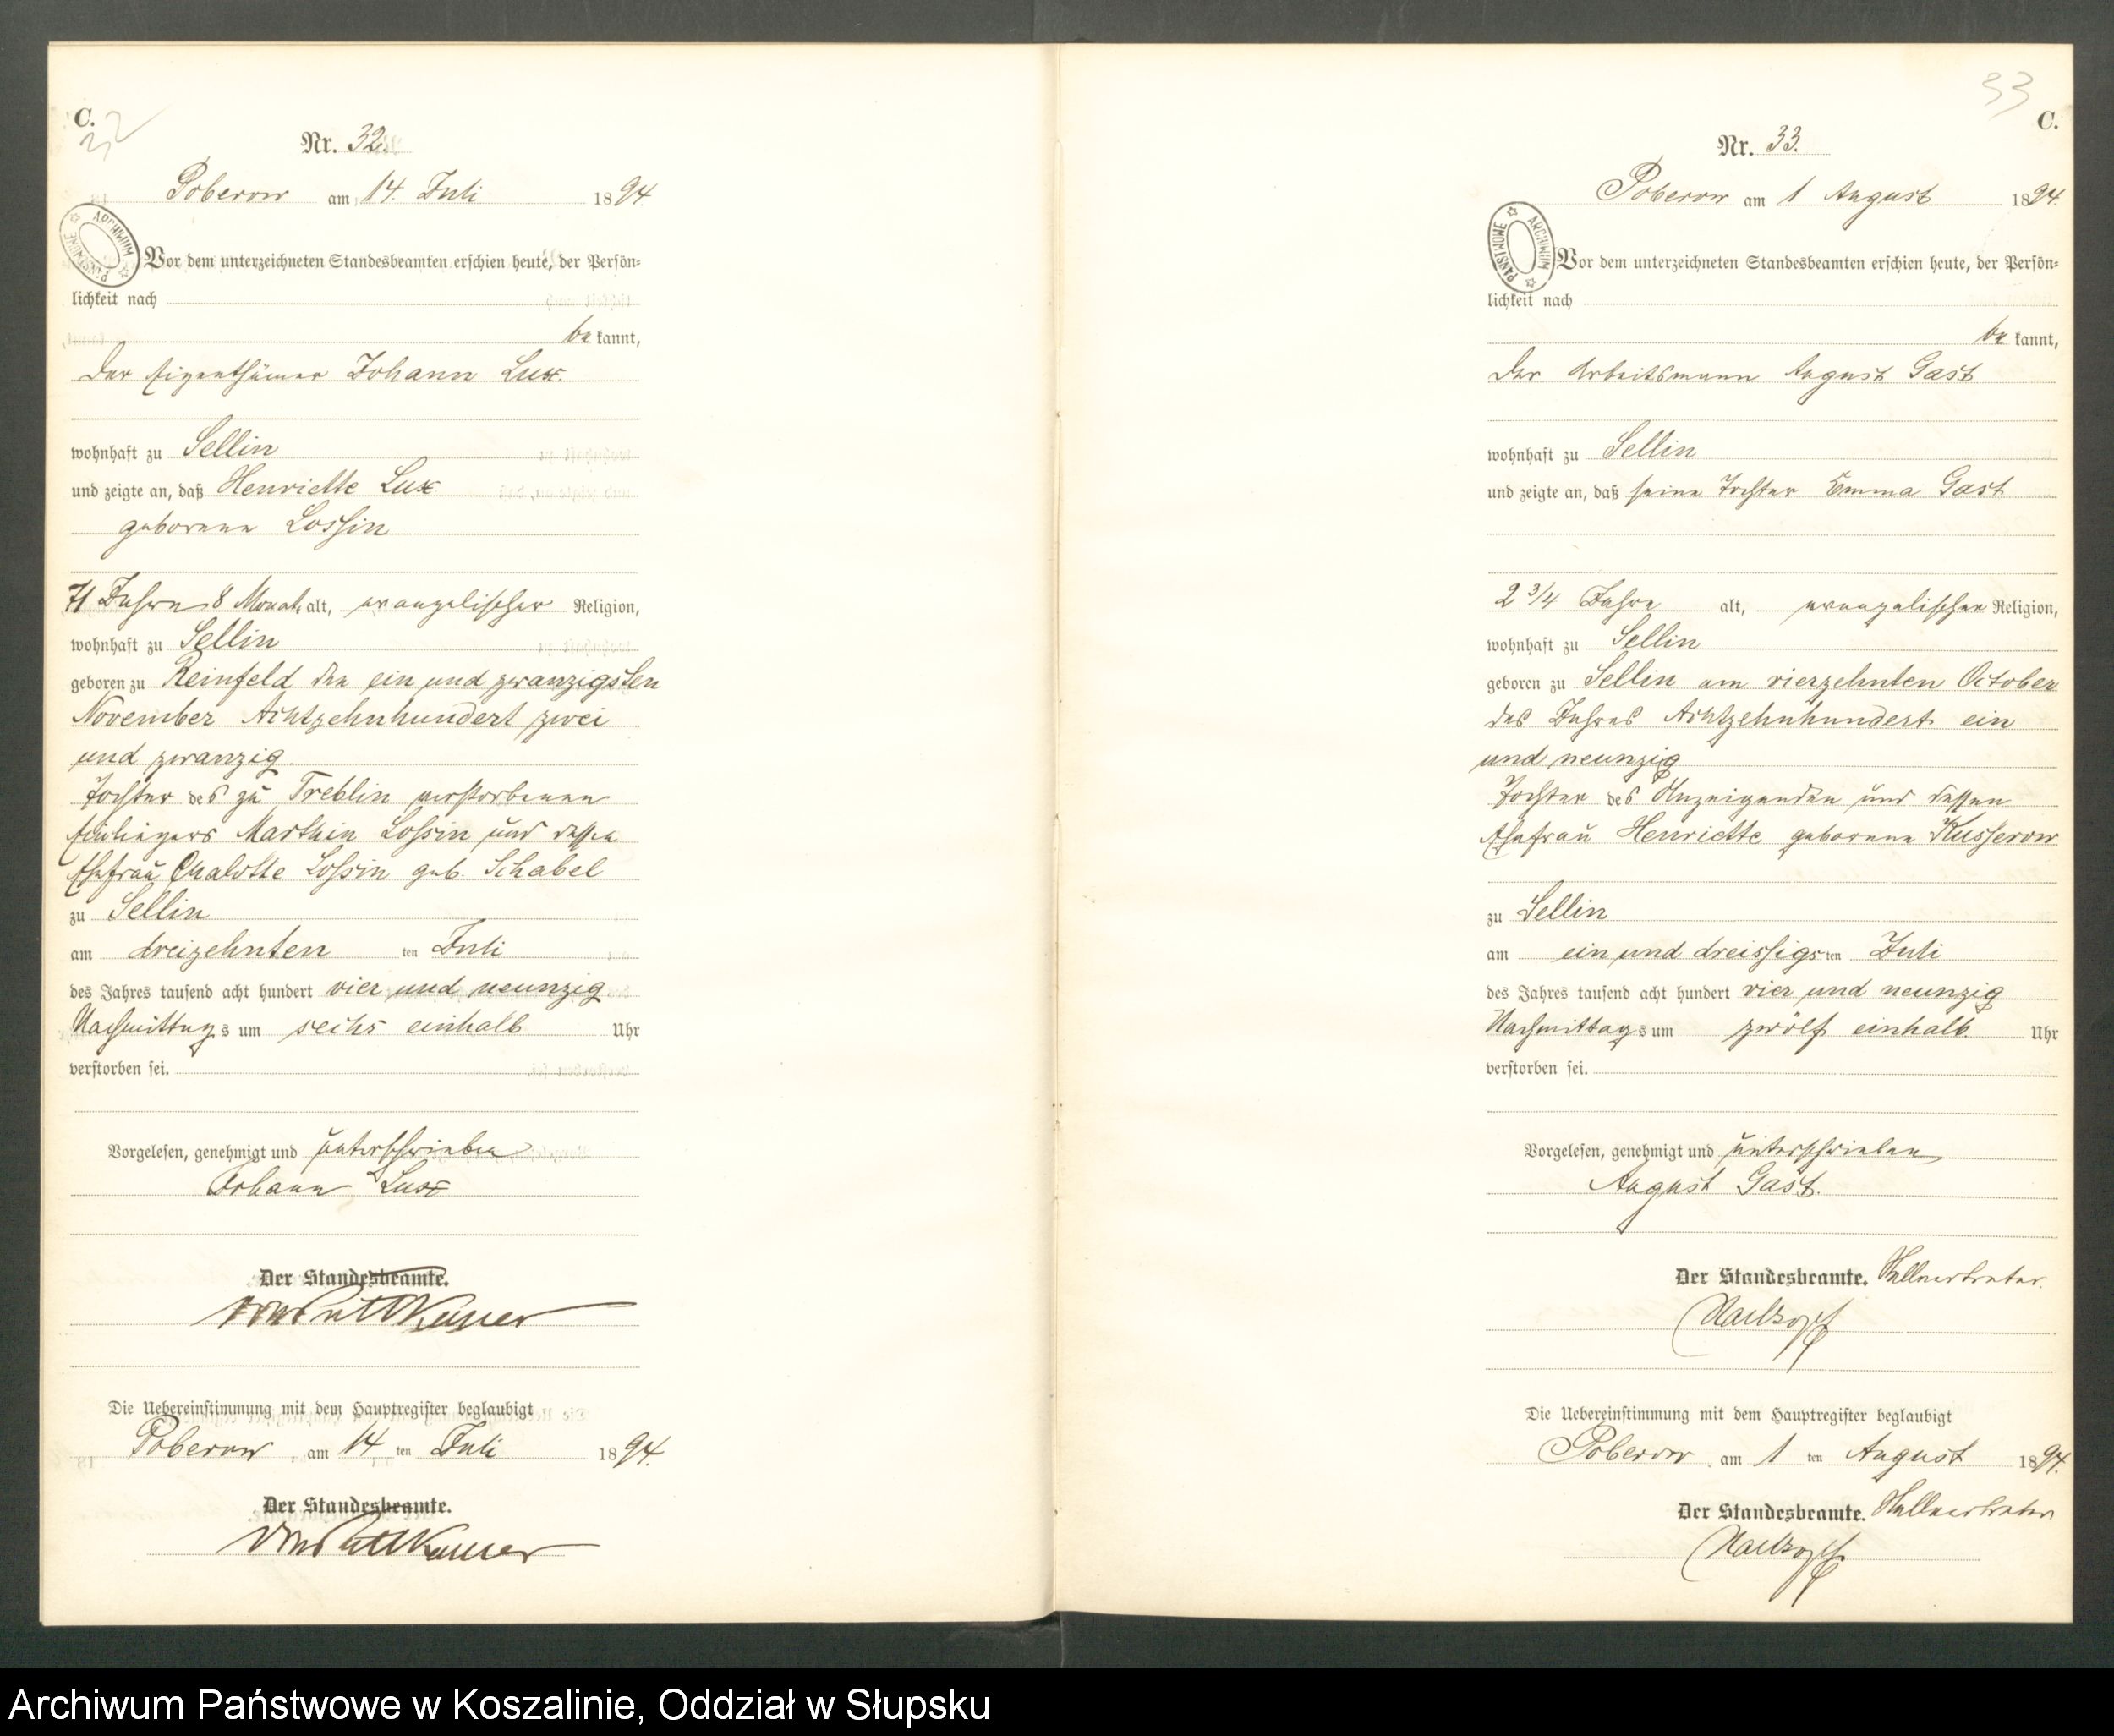 C.
32
Nr. 32.
Poberow am 14. Juli 1894.
ARCHIWUM PAŃSTWOWE
Vor dem unterzeichneten Standesbeamten erschien heute, der Persön=
lichkeit nach
be kannt,
der Eigenthümer Johann Lux.
wohnhaft zu Sellin
und zeigte an, daß Henriette Lux
geborene Lossin
71 Jahre 8 Monat alt, evangelischer Religion,
wohnhaft zu Sellin
geboren zu Reinfeld den ein und zwanzigsten
November Achtzehnhundert zwei
und zwanzig.
Tochter des zu Treblin verstorbenen
Marthin Lossin und dessen
Ehefrau Chalotte Lossin geb. Schabel
zu Sellin
am dreizehnten ten Juli
des Jahres tausend acht hundert vier und neunzig
Nachmittags um sechs einhalb Uhr
verstorben sei.
Vorgelesen, genehmigt und unterschrieben
Johann Lux
Der Standesbeamte.
von Puttkamer
Die Uebereinstimmung mit dem Hauptregister beglaubigt
Poberow, am 14 ten Juli 1894.
Der Standesbeamte.
von Puttkamer
33
C.
Nr. 33.
Poberow am 1 August 1894.
ARCHIWUM PAŃSTWOWE
Vor dem unterzeichneten Standesbeamten erschien heute, der Persön=
lichkeit nach
be kannt,
der Arbeitsmann August Gast
wohnhaft zu Sellin
und zeigte an, daß seine Tochter Emma Gast
2 3/4 Jahre alt, evangelischer Religion,
wohnhaft zu Sellin
geboren zu Sellin am vierzehnten October
des Jahres Achtzehnhundert ein
und neunzig
Tochter des Anzeigenden und dessen
Ehefrau Henriette geborene Kusserow
zu Sellin
am ein und dreissigs ten Juli
des Jahres tausend acht hundert vier und neunzig
Nachmittags um zwölf einhalb Uhr
verstorben sei.
Vorgelesen, genehmigt und unterschrieben
August Gast.
Der Standesbeamte. Stellvertreter.
Die Uebereinstimmung mit dem Hauptregister beglaubigt
Poberow, am 1 ten August 1894.
Der Standesbeamte. Stellvertreter
Archiwum Państwowe w Koszalinie, Oddział w Słupsku